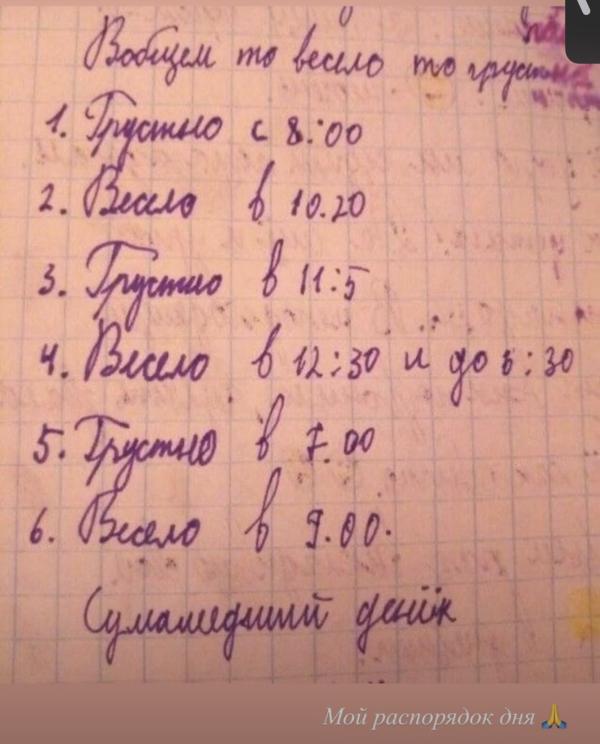 Вобщем то весело то грустно
1. Грустно с 8:00
2. Весело в 10.20
3. Грустно в 11:5
4. Весело в 12:30 и до 5:30
5. Грустно в 7.00
6. Весело в 9.00.
Сумашедший денёк
Мой распорядок дня 🙏